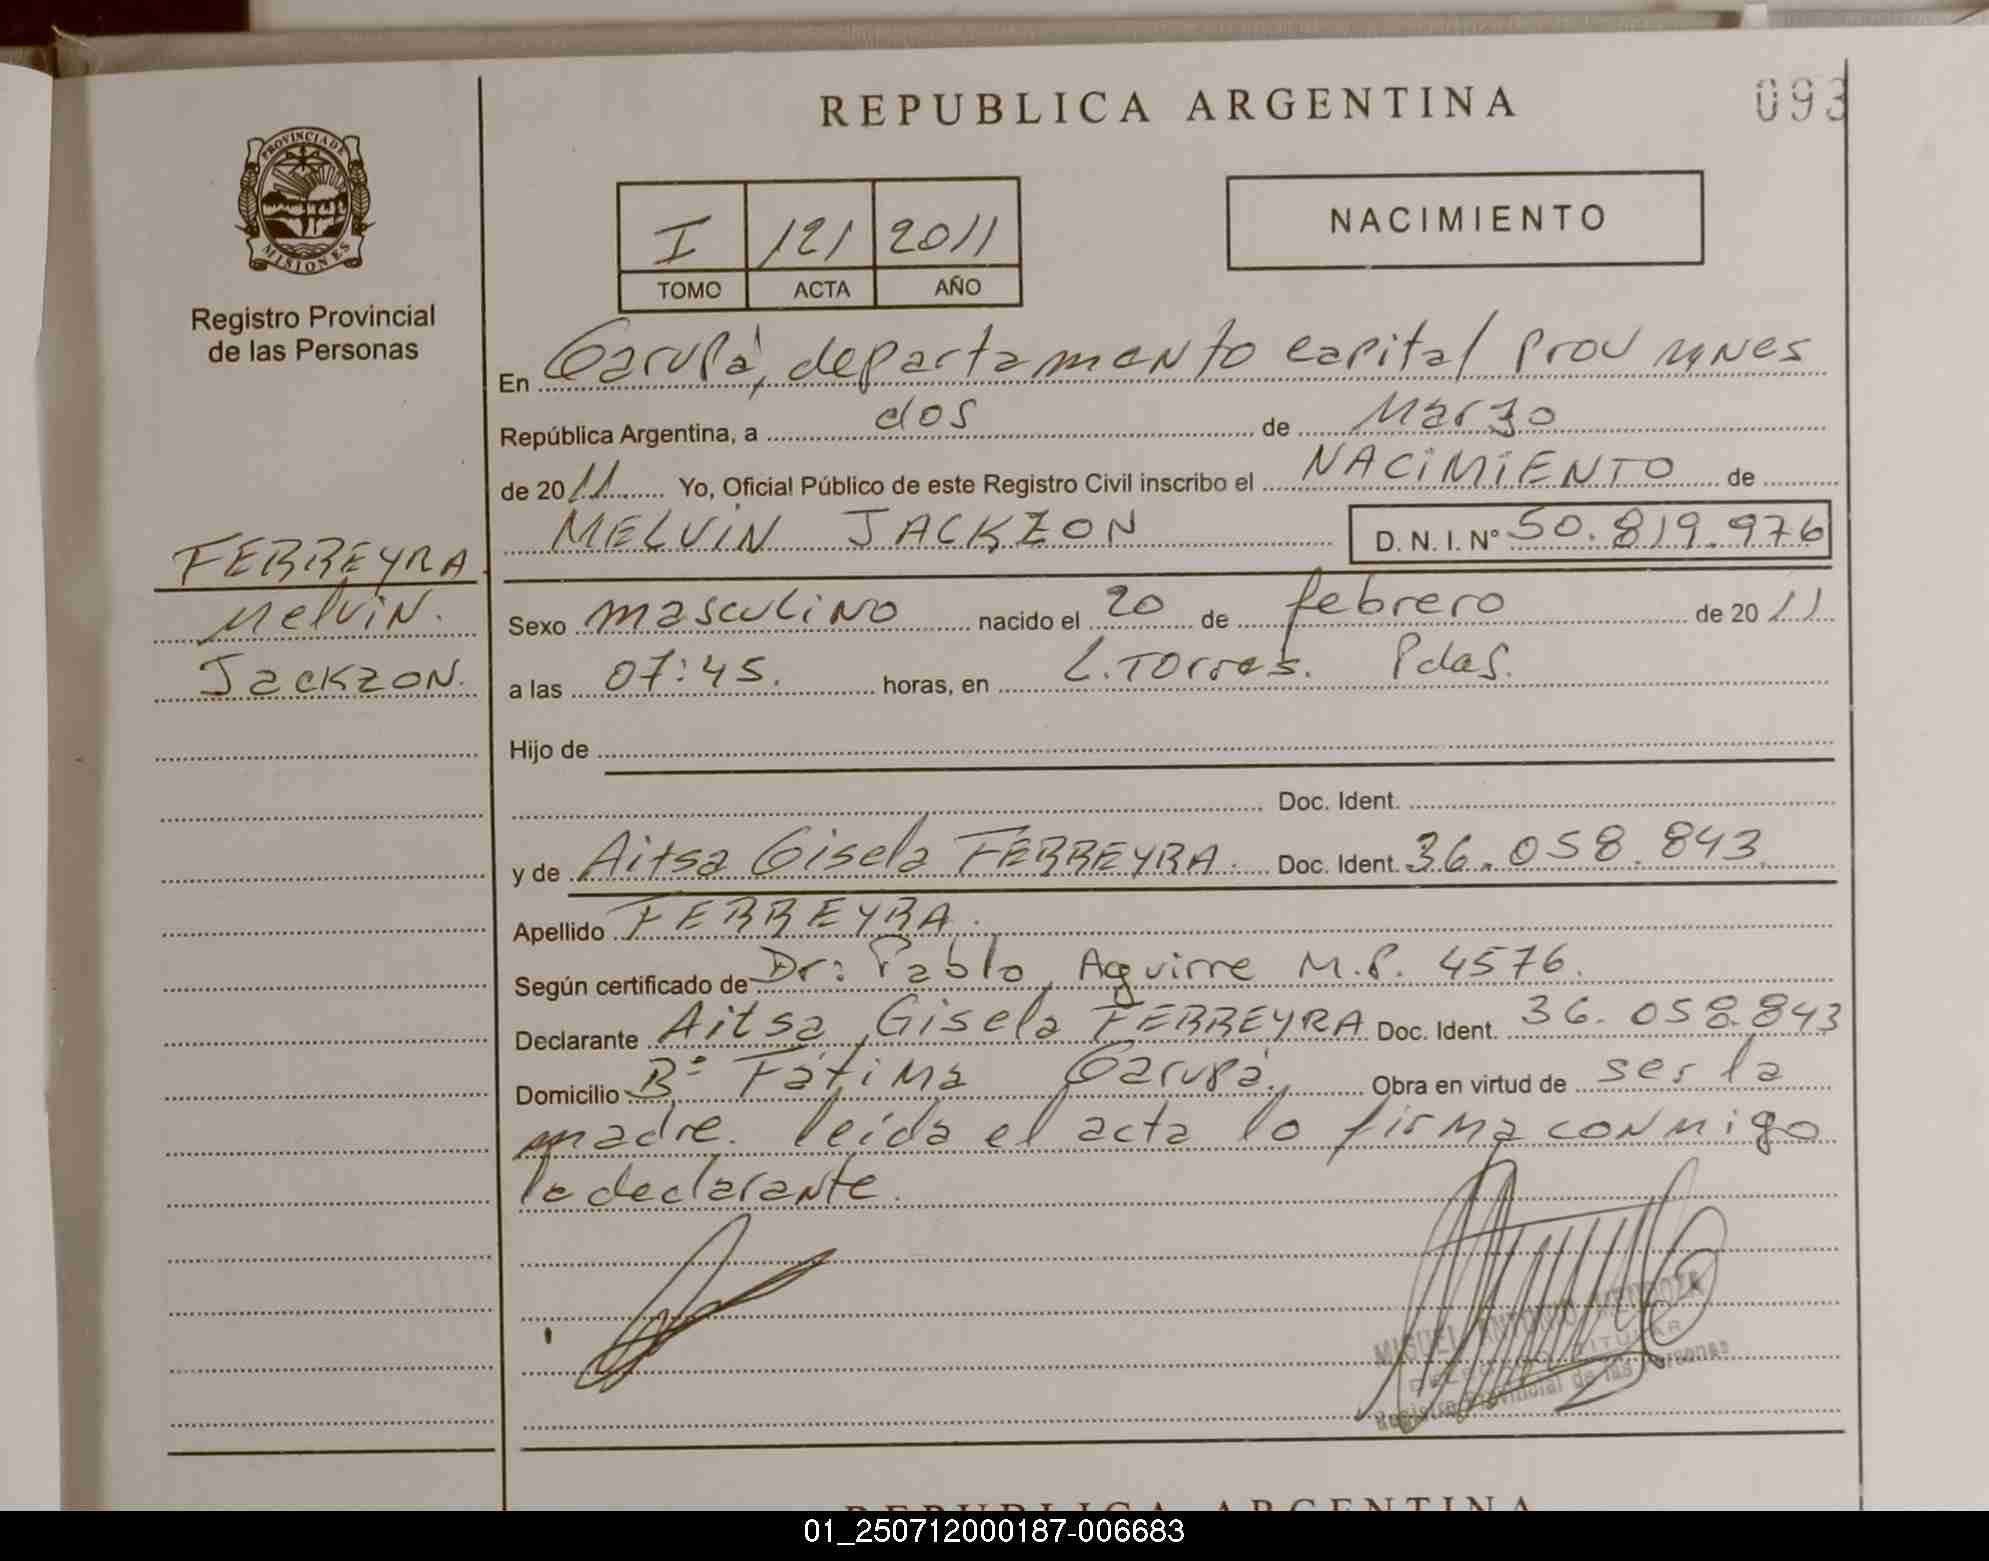 REPUBLICA ARGENTINA
093
PROVINCIA DE
MISIONES
Registro Provincial
de las Personas
I 121 2011
TOMO ACTA AÑO
NACIMIENTO
En Garupá, departamento capital Prov
República Argentina, a dos de Marzo
de 2011 Yo, Oficial Público de este Registro Civil inscribo el NACIMIENTO de
MELVIN JACKZON D. N. I. Nº 50.819.976
FERREYRA
Melvin.
Jackzon.
Sexo masculino nacido el 20 de febrero de 2011
a las 07:45. horas, en L. Torres. Pdas.
Hijo de
Doc. Ident.
y de Aitsa Gisela FERREYRA. Doc. Ident. 36.058.843.
Apellido FERREYRA.
Según certificado de Dr: Pablo Aguirre M.P. 4576.
Declarante Aitsa Gisela FERREYRA Doc. Ident. 36.058.843
Domicilio Bº Fátima Garupá. Obra en virtud de ser la
madre. leída el acta lo firma conmigo
la declarante.
MIGUEL ANTONIO MENDOZA
DELEGADO TITULAR
Registro Provincial de las Personas
REPUBLICA ARGENTINA
01_250712000187-006683